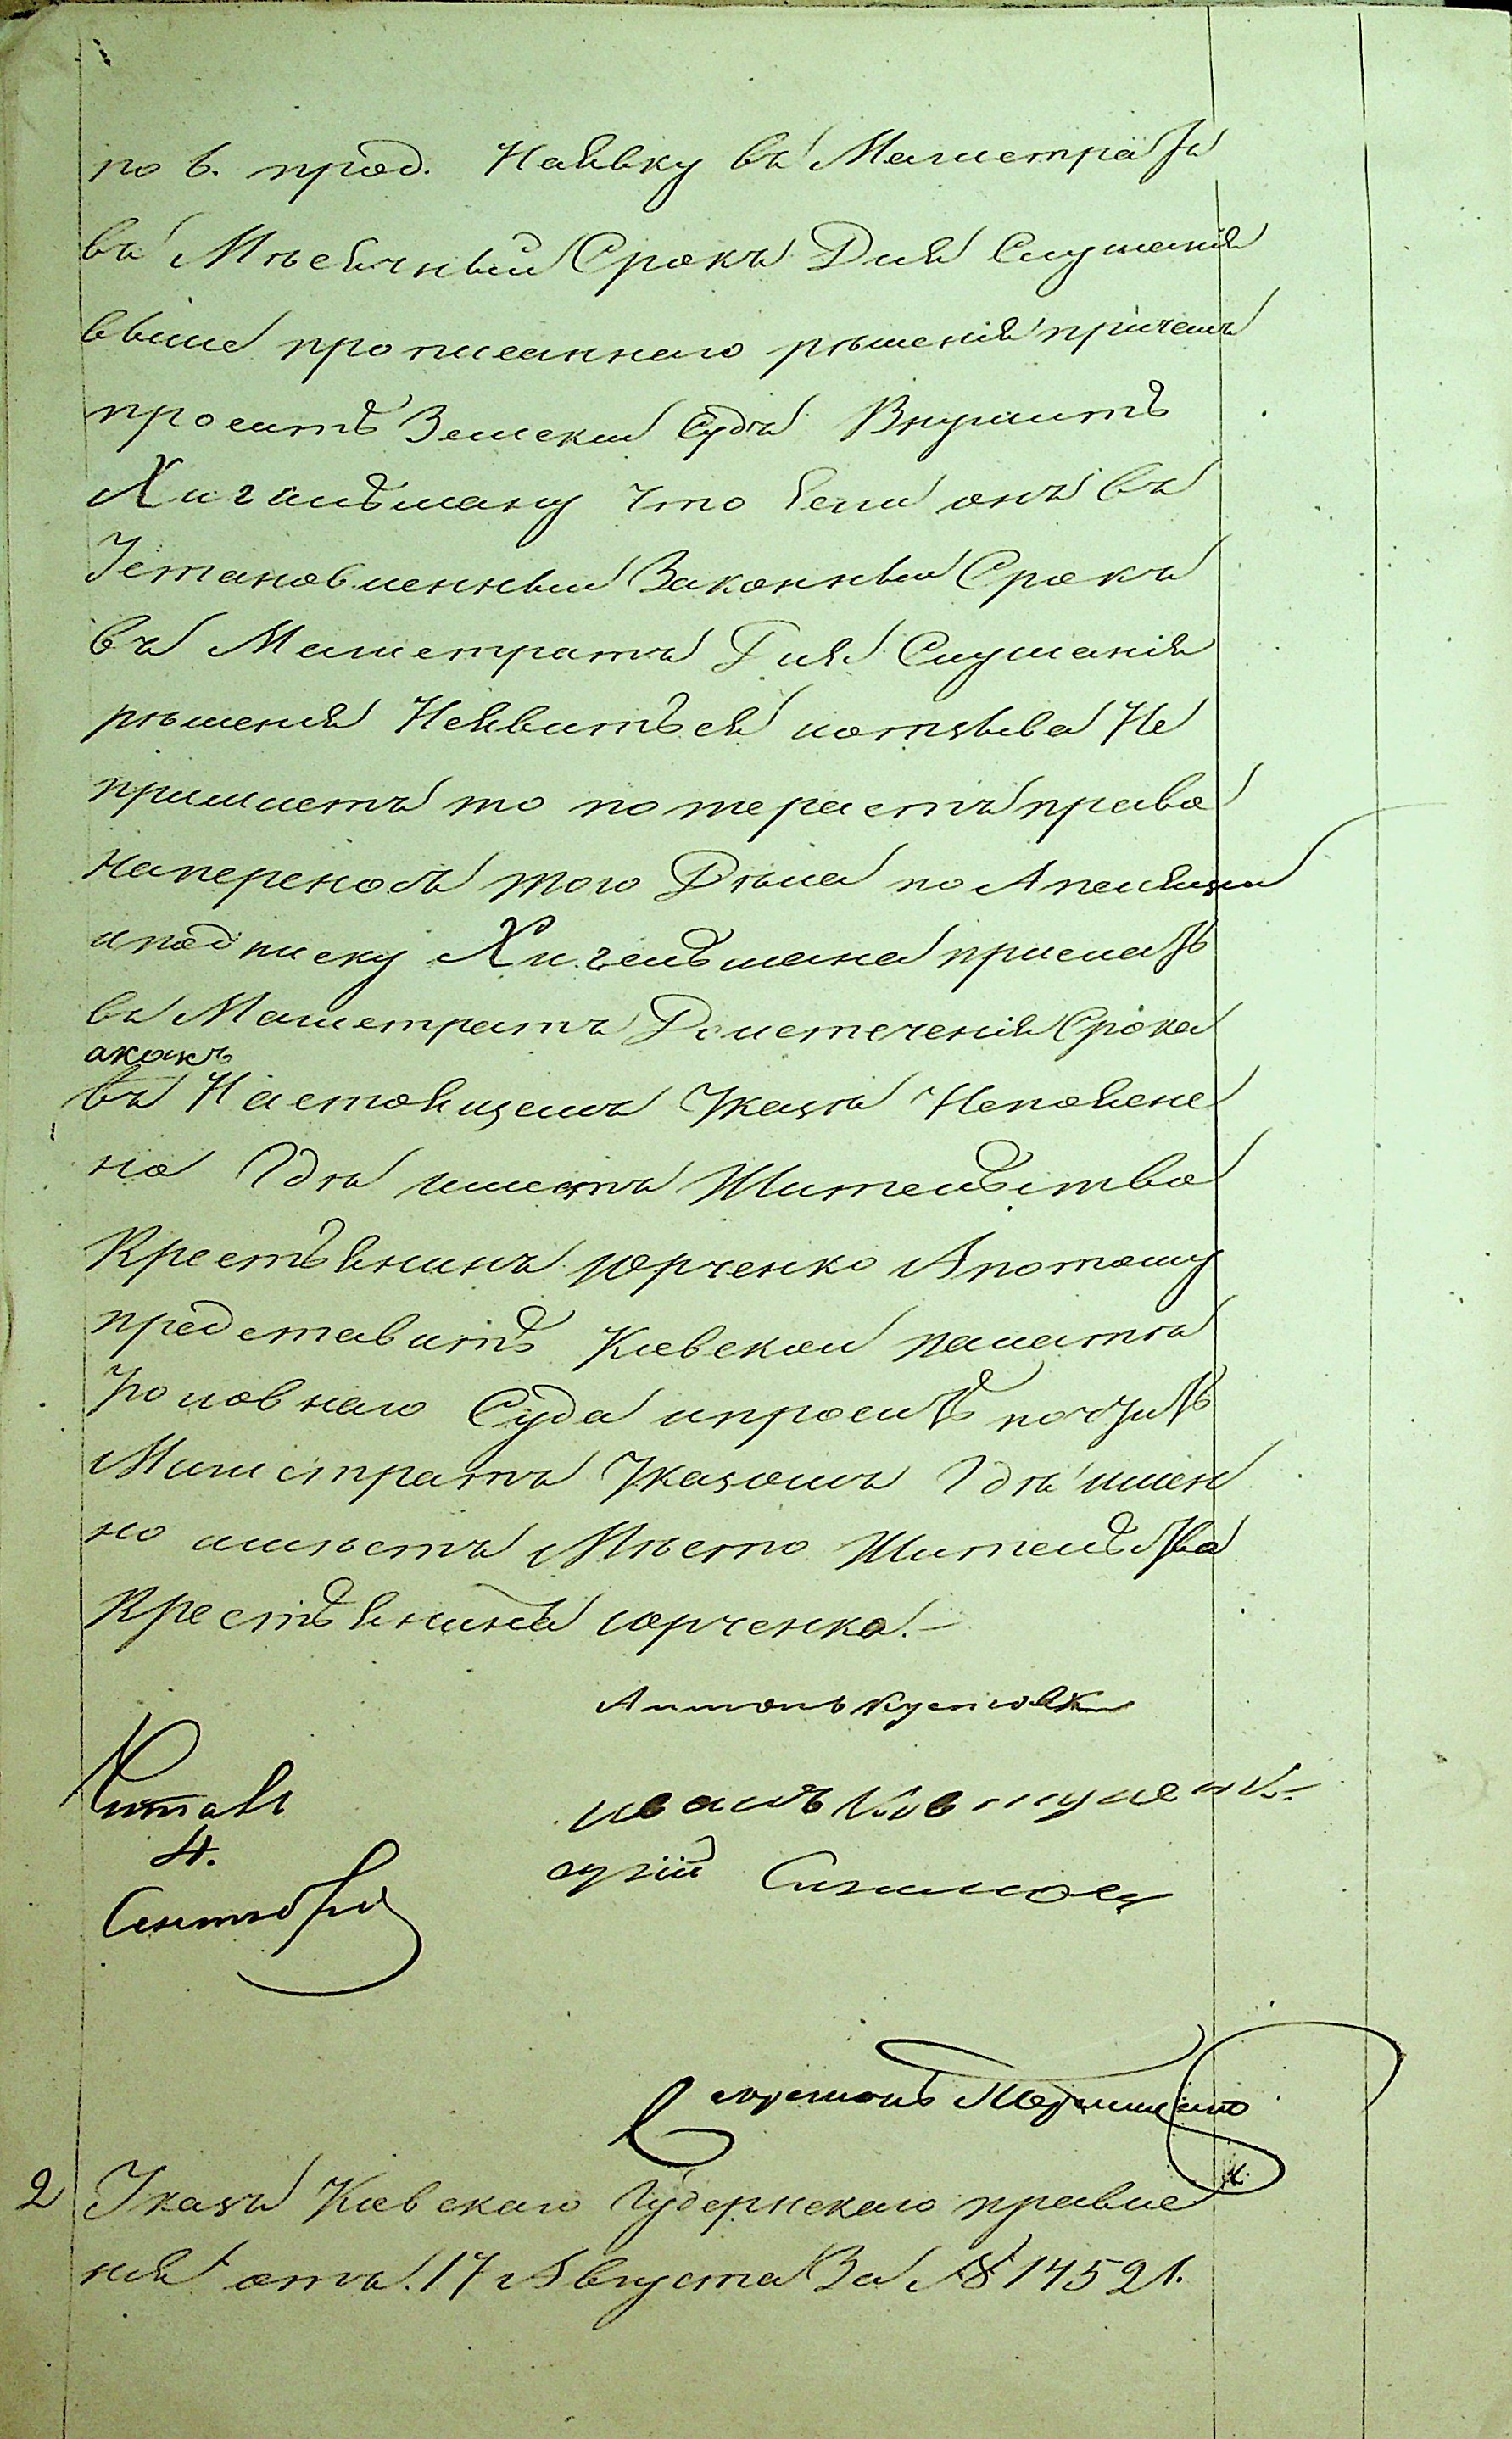 по 6. прод. Наявку въ Магистратъ
въ Мѣсячный Срокъ Для Слушанія
выше прописаннаго рѣшенія причемъ
просить Земскій Судъ Внушить
Хигельману что Если онъ въ
Установленный Законный Срокъ
въ Магистратъ Для Слушанія
рѣшенія Неявиться иотзыва Не
пришлетъ то потеряетъ право
наперенось того Дѣла по Апеляціи
иподписку Хигельмана прислать
въ Магистратъ Поистеченіи Срока
акакъ
въ Настоящемъ Указѣ Непоясне
но Гдѣ имеетъ Жительство
Крестьянинъ Юрченко Апотому
представить Киевской палатѣ
Уголовнаго Суда ипросить почтить
Магистратъ Указомъ Гдѣ имен
но имѣетъ Мѣсто Жительства
Крестьянинъ Юрченко.-
Антонъ
Читалъ
4.
Сентября
Иванъ
2 Указъ Киевскаго Губернскаго правле
нія отъ 17 Августа За № 14521.